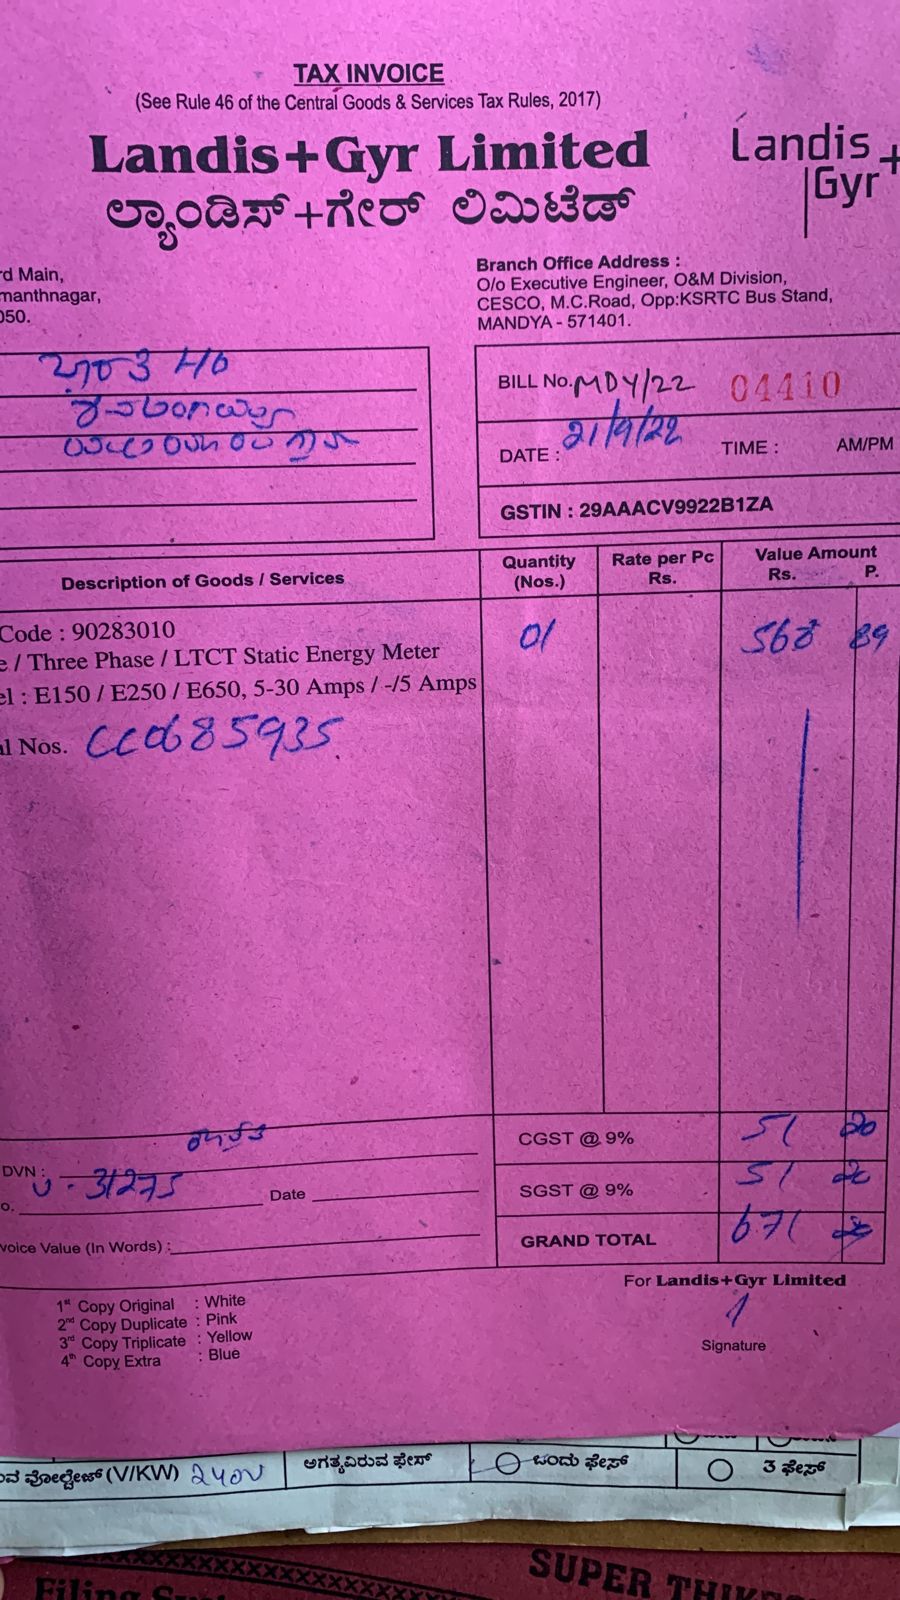 TAX INVOICE
(See Rule 46 of the Central Goods & Services Tax Rules, 2017)
Landis+Gyr Limited
ಲ್ಯಾಂಡಿಸ್+ಗೇರ್ ಲಿಮಿಟೆಡ್
Landis+
Gyr
rd Main,
manthnagar,
050.
Branch Office Address :
O/o Executive Engineer, O&M Division,
CESCO, M.C.Road, Opp:KSRTC Bus Stand,
MANDYA - 571401.
BILL No. MDY/22 04410
DATE : 21/9/22 TIME : AM/PM
GSTIN : 29AAACV9922B1ZA
Description of Goods / Services Quantity (Nos.) Rate per Pc Rs. Value Amount Rs. P.
Code : 90283010 01 568 89
e / Three Phase / LTCT Static Energy Meter
el : E150 / E250 / E650, 5-30 Amps / -/5 Amps
al Nos. CC0685935
CGST @ 9% 51 20
DVN :
SGST @ 9% 51 20
o. 31275 Date
GRAND TOTAL 671
voice Value (In Words) :
For Landis+Gyr Limited
1st Copy Original : White
2nd Copy Duplicate : Pink
3rd Copy Triplicate : Yellow
4th Copy Extra : Blue
Signature
ವ ವೋಲ್ಟೇಜ್ (V/KW) 240V ಅಗತ್ಯವಿರುವ ಫೇಸ್ ಒಂದು ಫೇಸ್ 3 ಫೇಸ್
SUPER
Filing